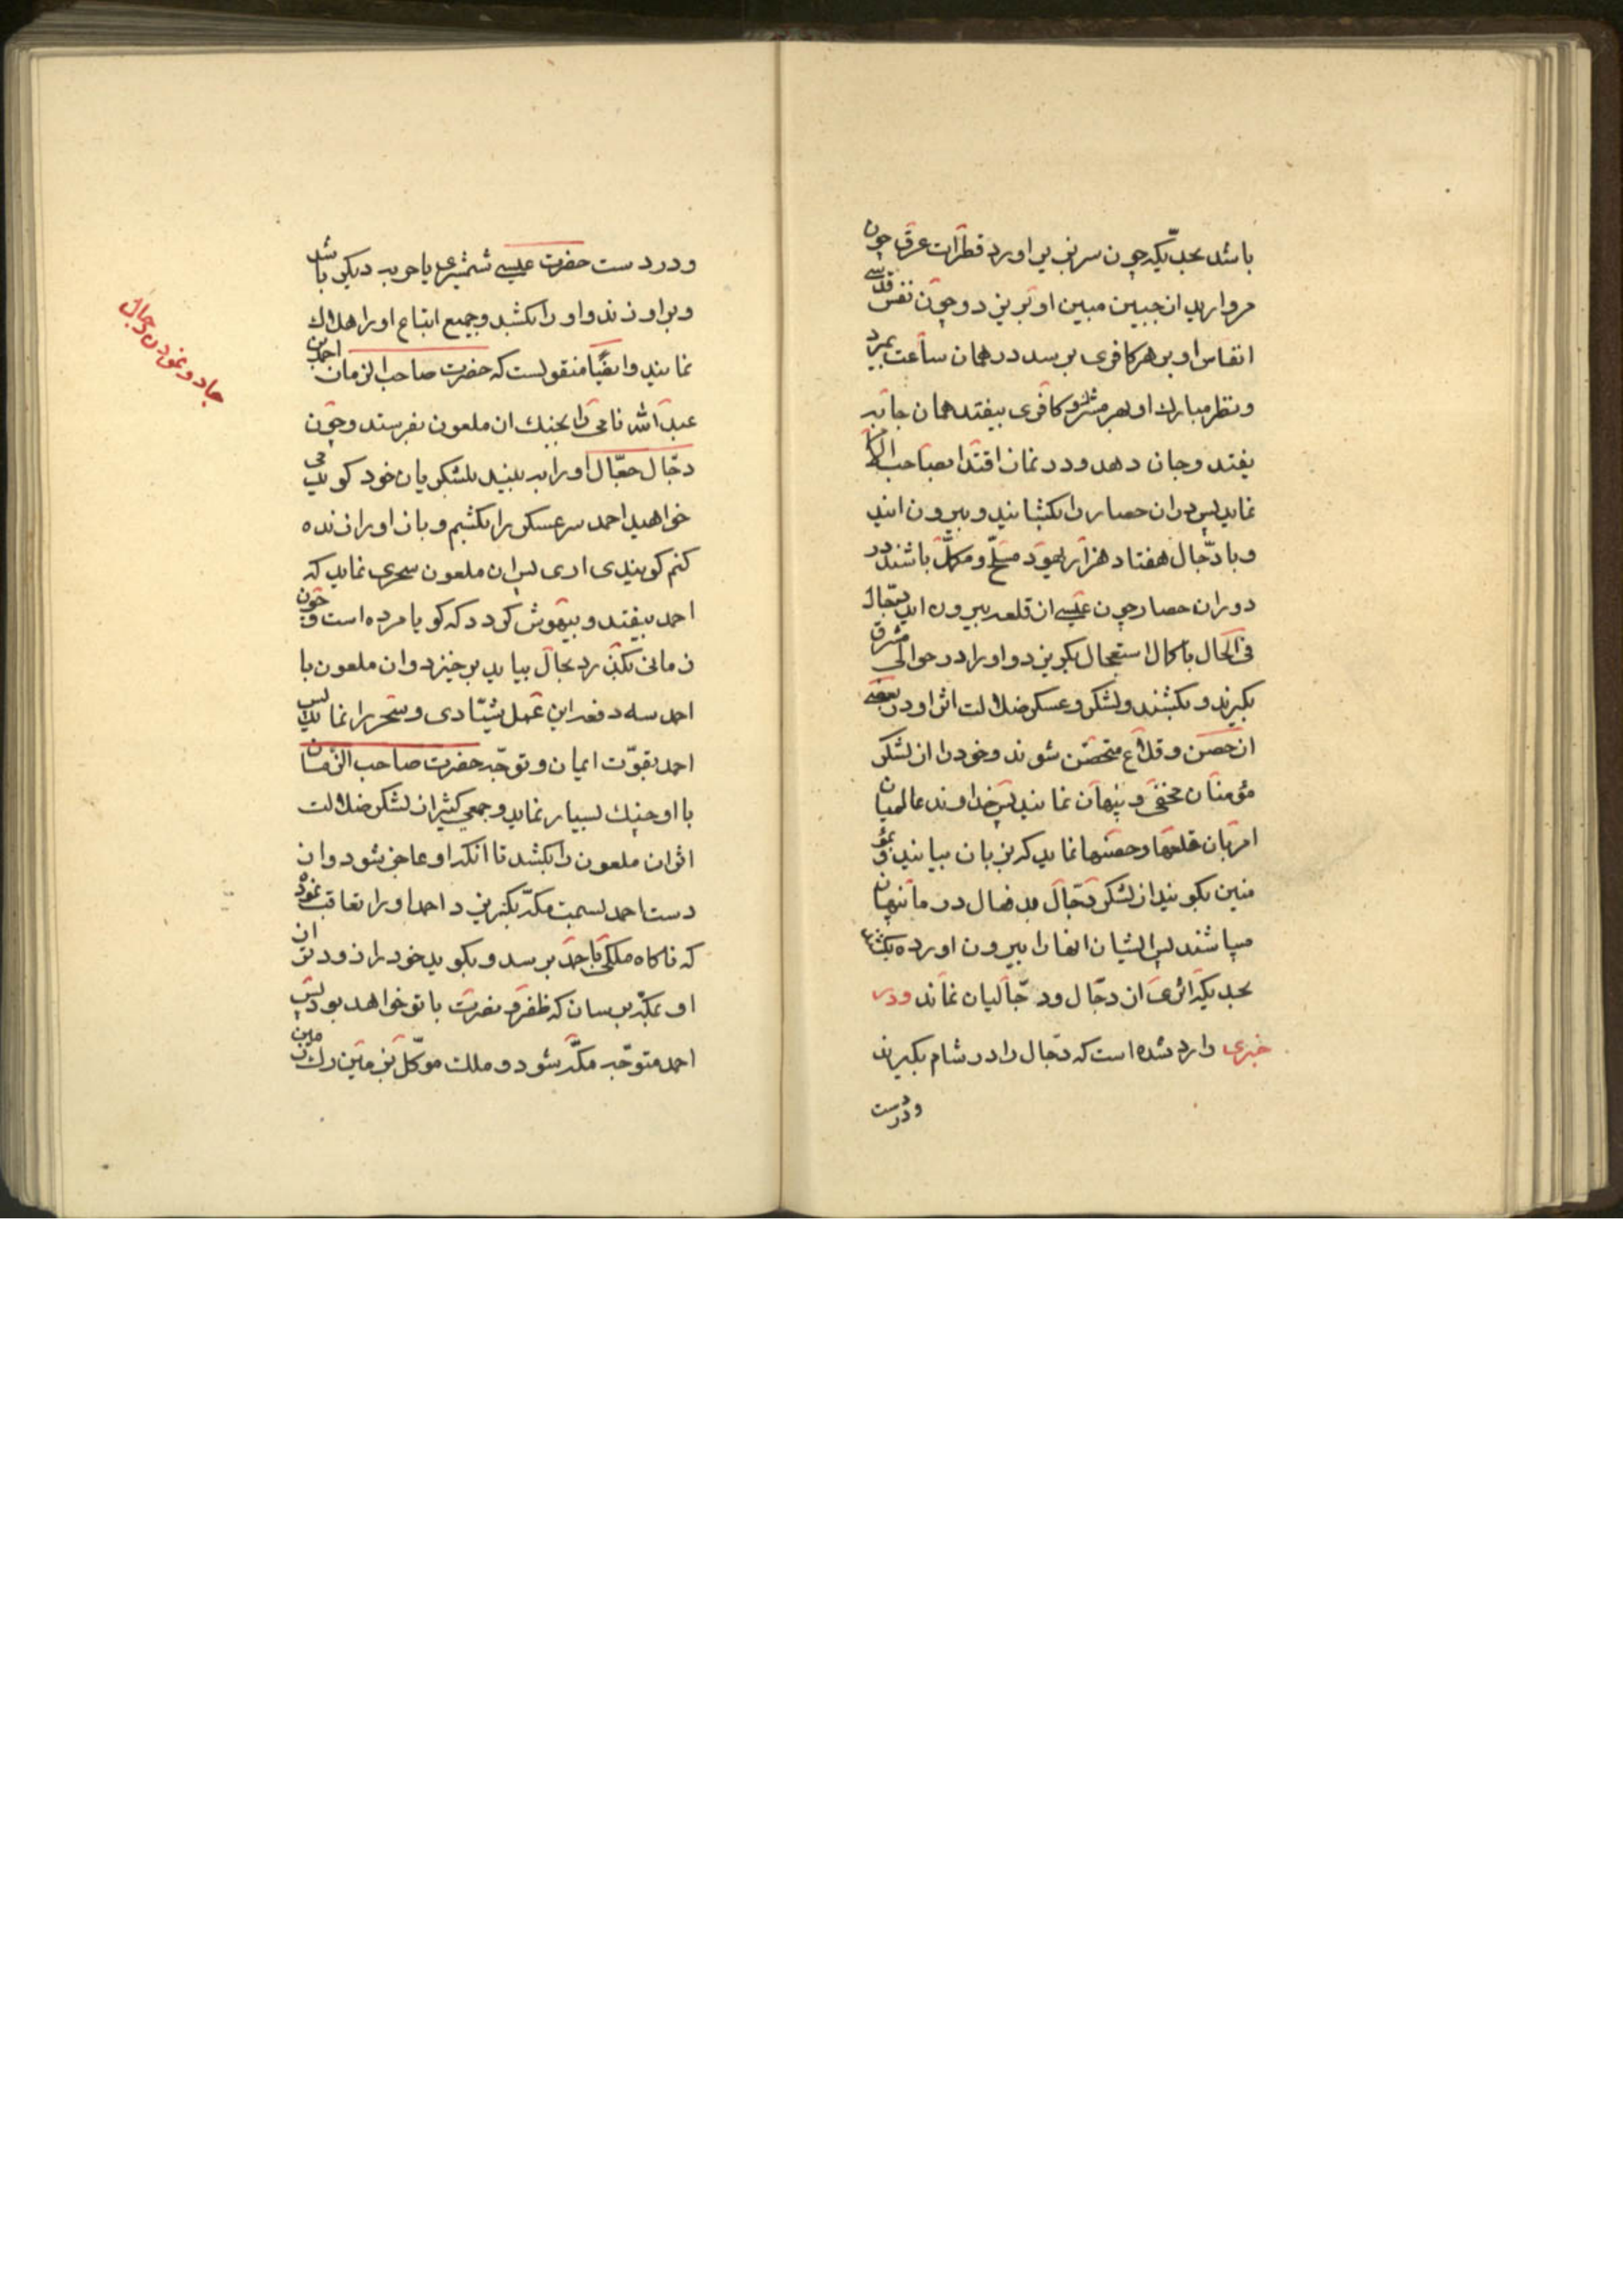 باشد بحدیکه چون سر بزیر اورد قطرات عرق چون
مروارید از جبین مبین او بریزد و چون نفس قدسی
انفاس او بر هر کافری برسد در همان ساعت بمیرد
و نظر مبارک او بهر مشرک و کافری بیفتد همان جا به
یفتد و جان دهد و در نماز اقتدا بصاحب
نماید پس در ان حصار را بکشایند و بیرون ایند
و با دجال هفتاد هزار یهود مسلح و مکمل باشند در
دور ان حصار چون عیسی از قلعه بیرون اید دجال
فی الحال با کمال استعجال بکریزد و او را در حوالی مشرق
بکیرند و بکشند و لشکر و عسکر ضلالت اثر او در بعضی
از حصن و قلاع متحصن شوند و خود را از لشکر
مؤمنان مخفی و پنهان نمایند پس خداوند عالمیان
امر بان قلعها و حصنها نماید که بزبان بیایند و بمؤ
منین بکویند از لشکر دجال بد فعال در ما پنهان
میباشند پس ایشان انها را بیرون اورده بکشند
بحدیکه اثری از دجال و دجالیان نماند و در
خبری وارد شده است که دجال را در شام بکیرند
و در دست
و در دست حضرت عیسی شمشیری یا حربه دیکر باشد
و بر او زند و او را بکشد و جمیع اتباع او را هلاک
نمایند و ایضا منقولست که حضرت صاحب الزمان احمد بن
عبد الله نامی را بجنک ان ملعون بفرستد و چون
دجال جعال او را به بیند بلشکریان خود کوید می
خواهید احمد سرعسکر را بکشم و باز او را زنده
کنم کویند اری پس ان ملعون سحری نماید که
احمد بیفتد و بیهوش کردد که کویا مرده است و چون
زمانی بکذرد بحال بیاید برخیزد و ان ملعون با
احمد سه دفعه این عمل شیادی و سحر را نماید پس
احمد بقوت ایمان و توجه حضرت صاحب الزمان
با او جنک بسیار نماید و جمعی کثیر از لشکر ضلالت
اثر ان ملعون را بکشد تا انکه او عاجز شود و از
دست احمد بسمت مکه بکریزد احمد او را تعاقب نموده
که ناکاه ملکی باحمد برسد و بکوید خود را زودتر از
او بمکه برسان که ظفر و نصرت با تو خواهد بود پس
احمد متوجه مکه شود و ملک موکل بزمین رک زمین
جادو نمودن دجال